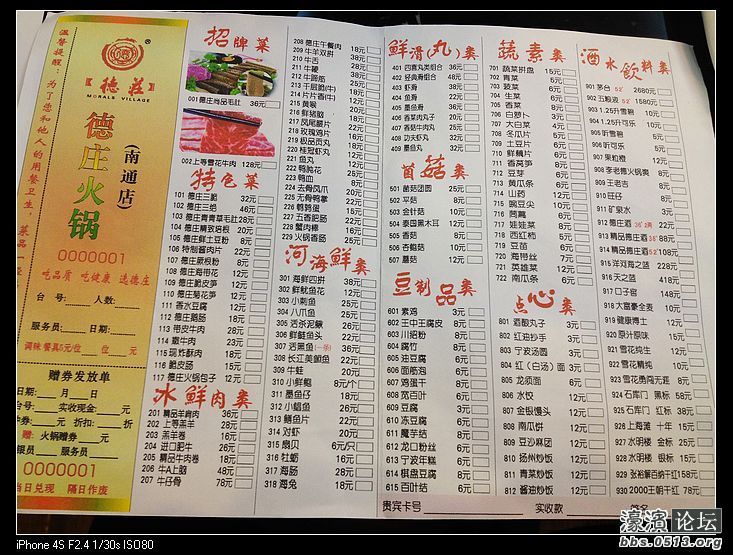 温馨提醒：为了您和他人的用餐卫生，菜品一经
德莊
MORALS VILLAGE
德庄火锅
(南通店)
0000001
吃品质 吃健康 选德庄
台 号： 人数：
服务员： 日期：
调味餐具5元/位 位 元
赠券发放单
日期： 月 日
台号： 实收现金： 元
折扣： 折
赠: 火锅赠券 元
服务员
0000001
当日兑现 隔日作废
招牌菜
001德庄尚品毛肚 36元
002上等雪花牛肉 128元
特色菜
101 德庄三脆 32元
102 德庄三绝 46元
103 德庄青青草毛肚 28元
104 德庄精致培根 20元
105 德庄鲜土豆粉 8元
106 特制酱肉片 22元
107 德庄蕨根粉 8元
108 德庄海带花 12元
109 德庄脆皮笋 12元
110 德庄菊花笋 12元
111 香水豆腐 12元
112 德庄鹅肠 18元
113 带皮牛肉 28元
114 嫩牛肉 23元
115 现炸酥肉 18元
116 脆皮肠 15元
117 德庄火锅包子 12元
冰鲜肉类
201 精品羊肩肉 36元
202 上等羔羊 28元
203 羔羊卷 16元
204 进口肥牛 26元
205 精品牛肉卷 18元
206 牛A上脑 48元
207 牛仔骨 78元
208 德庄午餐肉 18元
209 牛羊双拼
210 牛舌
211 牛鞭
212 牛蹄筋 25元
213 千层肚(牛) 18元
214 片片香(牛) 12元
215 黄喉 20元
216 鲜猪脑
217 凤尾腰片 22元
218 玫瑰鸡片 16元
219 极品贡丸 18元
220 桂冠虾丸
221 鱼丸
222 鸭胗花
223 鸭血
224 去骨凤爪 20元
225 无骨鸭掌 22元
226 鹌鹑蛋
227 五香肥肠 22元
228 蟹肉棒 16元
229 火锅香肠
河海鲜类
301 海鲜四拼 38元
302 鲜鱿鱼花 12元
303 小刺鱼 25元
304 八爪鱼 25元
305 活杀泥鳅 26元
306 鲜鲢鱼头
307 活黑鱼(一条) 36元
308 长江美鮰鱼
309 牛蛙 20元
310 小鲜鲍 8元/个
311 墨鱼仔 18元
312 小鲳鱼 26元
313 鳝鱼片 22元
314 对虾 20元
315 扇贝 6元/只
316 牡蛎 16元
317 海肠 28元
318 海兔 18元
鲜滑(丸)类
401 四喜丸类组合 36元
402 经典滑组合 48元
403 虾滑
404 鱼滑
405 墨鱼滑
406 香菜肉丸子 20元
407 香菇牛肉丸 25元
408 功夫虾丸 32元
409 墨鱼丸
菌菇类
501 菌菇团圆 25元
502 平菇 8元
503 金针菇 10元
504 泰国黑木耳 12元
505 香菇 8元
506 杏鲍菇 10元
507 蘑菇 12元
豆制品类
601 素鸡 3元
602 王中王腐皮 8元
603 川招粉 8元
604 腐竹 8元
605 油豆腐 6元
606 面筋泡 6元
607 鸡蛋干 8元
608 宽百叶 6元
609 豆腐 3元
610 冻豆腐 6元
611 魔芋结 8元
612 龙口粉丝 6元
613 宁波年糕 6元
614 棋盘豆腐 8元
615 百叶结 6元
蔬素类
701 蔬菜拼盘 15元
702 青菜 5元
703 菠菜 6元
704 生菜 6元
705 香菜 8元
706 白萝卜 3元
707 大白菜 4元
708 冬瓜片 5元
709 土豆片 5元
710 鲜藕片 6元
711 香莴笋 8元
712 豆芽 5元
713 黄瓜条 6元
714 山药 12元
715 豌豆尖 10元
716 茼蒿 8元
717 娃娃菜 8元
718 西红柿 5元
719 豆苗 6元
720 海带丝 4元
721 英雄菜 12元
722 南瓜条 6元
点心类
801 酒酿丸子 3元
802 红油抄手 3元
803 宁波汤圆 3元
804 红(白汤)面 3元
805 龙须面 6元
806 水饺 12元
807 金银馒头 12元
808 南瓜饼 12元
809 豆沙麻团 12元
810 扬州炒饭 12元
811 青菜炒饭 12元
812 酱油炒饭 12元
酒水饮料类
901 茅台 52° 2680元
902 五粮液 52° 1580元
903 1.25升雪碧
904 1.25升可乐 10元
905 听雪碧 5元
906 听可乐 5元
907 果粒橙 12元
908 李老德火锅爽 8元
909 王老吉 8元
910 旺仔 8元
911 矿泉水 3元
912 德庄酒
913 精品德庄酒 38° 88元
914 精品德庄酒 52° 108元
915 洋河海之蓝 228元
916 天之蓝 418元
917 口子窖 148元
918 大富豪全麦 10元
919 健康博士 12元
920 原汁原味 15元
921 雪花纯生 12元
922 雪花精纯 10元
923 雪花勇闯天涯 8元
924 石库门 黑标 58元
925 石库门 红标 38元
926 上海滩 十年 25元
927 水明楼 金标 25元
928 水明楼 银标 15元
929 张裕解百纳干红 158元
930 2000王朝干红 78元
贵宾卡号
实收款
签名
濠滨论坛
bbs.0513.org
iPhone 4S F2.4 1/30s ISO80